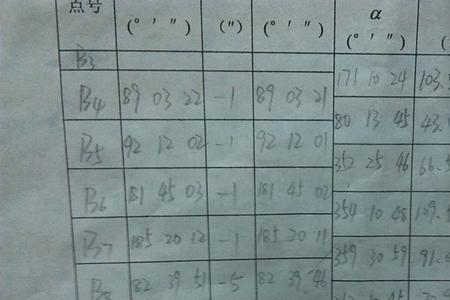 点号 (° ′ ″) (″) (° ′ ″) α (° ′ ″) (
B3
171 10 24 103.
B4 89 03 22 -1 89 03 21
80 13 45 43.
B5 92 12 02 -1 92 12 01
352 25 46 66.
B6 181 45 03 -1 181 45 02
354 10 48 109.
B7 185 20 12 -1 185 20 11
359 30 59 91.
B8 82 39 51 -5 82 39 46